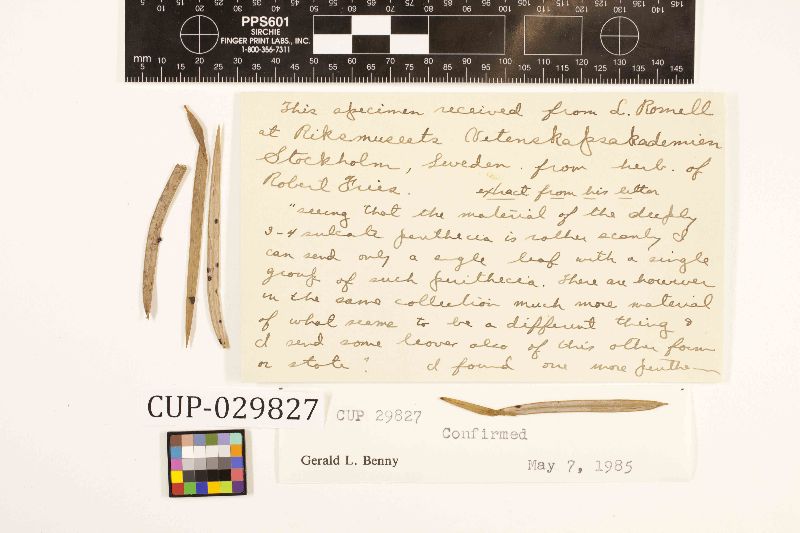 PPS601
SIRCHIE
FINGER PRINT LABS., INC.
1-800-356-7311
mm
5 10 15 20 25 30 35 40 45 50 55 60 65 70 75 80 85 90 95 100 105 110 115 120 125 130 135 140 145
This specimen received from L. Romell
at Riksmuseets Vetenskapsakademien
Stockholm, Sweden. from herb. of
Robert Fries. extract from his letter
"seeing that the material of the deeply
3-4 sulcate perithecia is rather scanty I
can send only a single leaf with a single
group of such perithecia. There are however
in the same collection much more material
of what seems to be a different thing &
I send some leaves also of this other form
or state" I found one more
CUP-029827
CUP 29827
Confirmed
Gerald L. Benny
May 7, 1985